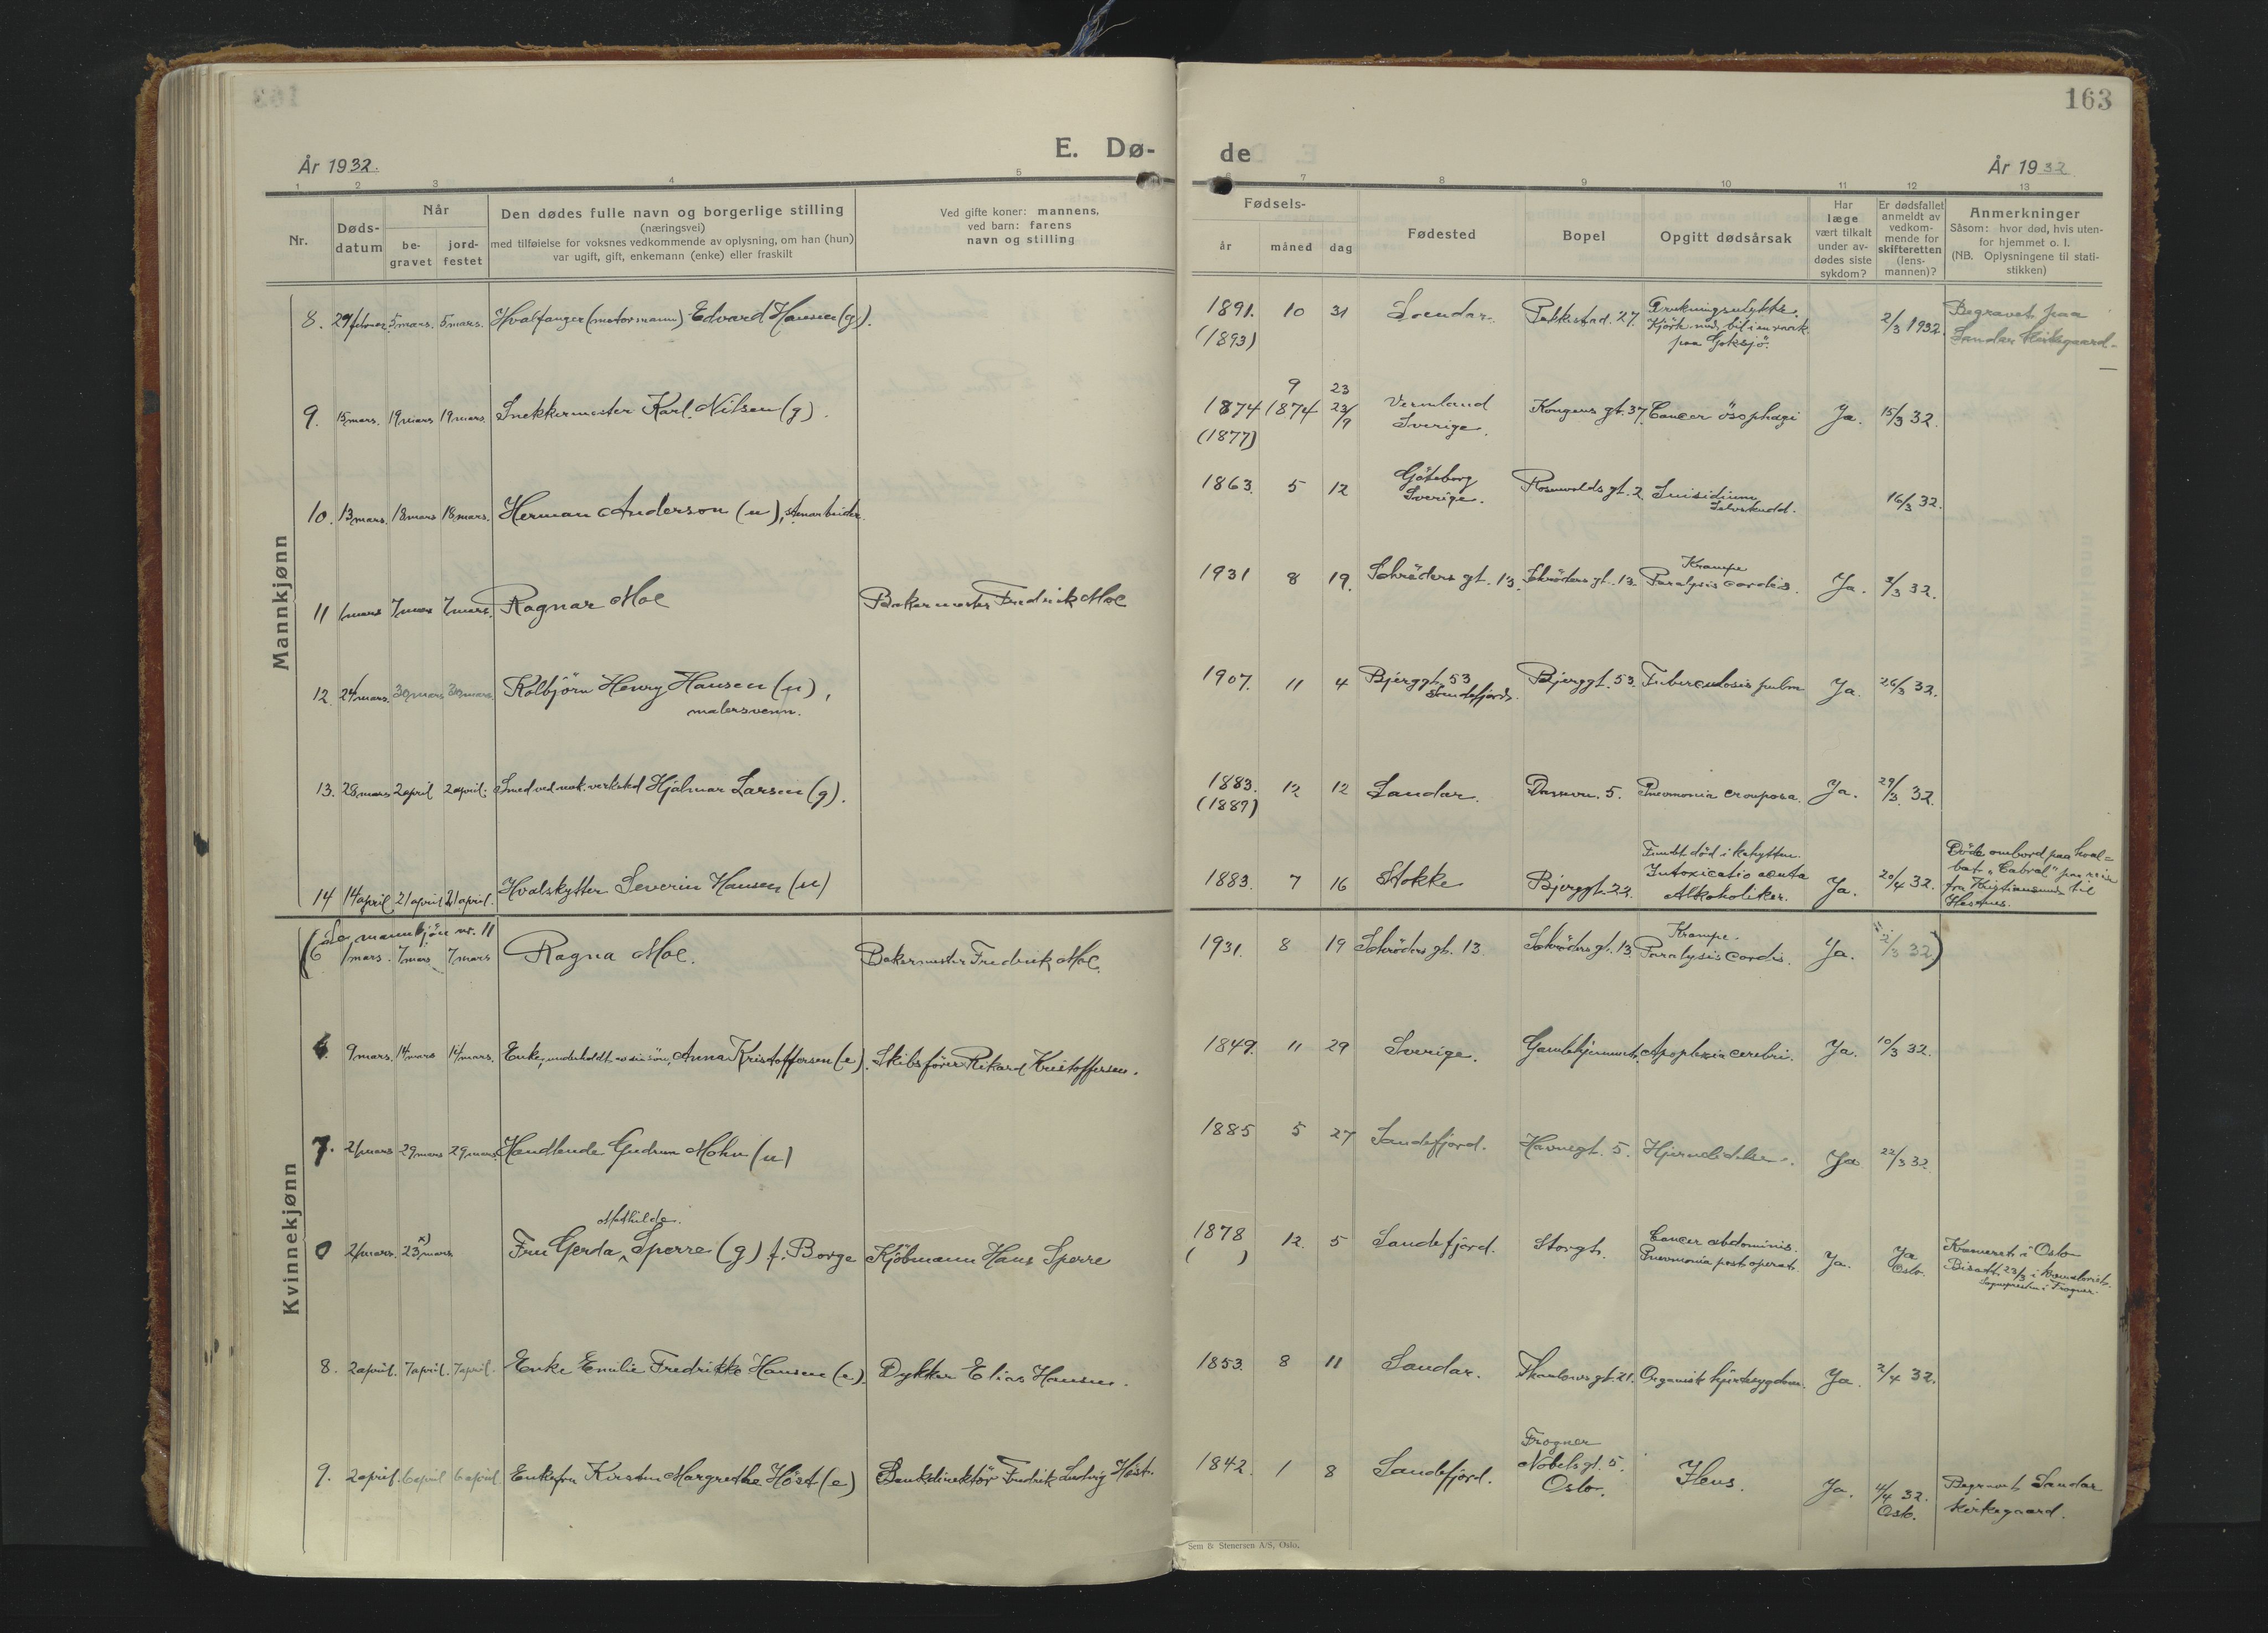 163
E. Dø- de
År 1932.
År 1932
1 2 3 4 5 6 7 8 9 10 11 12 13
Nr.
Døds-
datum
Når
be-
gravet
jord-
festet
Den dødes fulle navn og borgerlige stilling
(næringsvei)
med tilføielse for voksnes vedkommende av oplysning, om han (hun)
var ugift, gift, enkemann (enke) eller fraskilt
Ved gifte koner: mannens,
ved barn: farens
navn og stilling
Fødsels-
år måned dag
Fødested
Bopel
Opgitt dødsårsak
Har
læge
vært tilkalt
under av-
dødes siste
sykdom?
Er dødsfallet
anmeldt av
vedkom-
mende for
skifteretten
(lens-
mannen)?
Anmerkninger
Såsom: hvor død, hvis uten-
for hjemmet o. l.
(NB. Oplysningene til stati-
stikken)
Mannkjønn
8. 29 februar 5 mars. 5 mars. Hvalfanger (motormann) Edvard Hansen (g). 1891. 10 31 Sandar. Pukkestad. 27. Drukningsulykke.
(1893) Kjørte ned, bil i en raak
paa Goksjø. 2/3 1932. Begravet paa
Sandar Kirkegaard.
9. 15 mars. 19 mars 19 mars. Snekkermester Karl Nilsen (g).
9 23
1874 1874 23/9 Vermland
Sverige. Kongens gt. 37. Cancer ösophagi Ja. 15/3 32.
(1877)
10. 13 mars. 18 mars 18 mars. Herman Anderson (u), stenarbeider. 1863. 5 12 Göteborg
Sverige. Rosenvolds gt. 2. Suisidium
Selvskudd. 16/3 32.
11 1 mars 7 mars 7 mars. Ragnar Moe Bakermester Fredrik Moe 1931 8 19. Schrøders gt. 13. Schrøders gt. 13. Krampe
Paralysis cordis. Ja. 3/3 32.
12. 24 mars. 30 mars 30 mars. Kolbjörn Henry Hansen (u),
malersvenn. 1907. 11 4 Bjerggt. 53
Sandefjord. Bjerggt. 53. Tuberculosis pulm Ja. 26/3 32.
13. 28 mars 2 april 2 april. Smed ved mek. verksted Hjalmar Larsen (g). 1883. 12 12 Sandar. 5. Pneumonia crouposa. Ja. 29/3 32.
(1889)
14 14 april. 21 april 21 april. Hvalskytter Severin Hansen (u) 1883. 7 16 Stokke Bjerggt. 22. Fundet död i kahytten.
Intoxicatio acuta
Alkoholiker. Ja. 20/4 32. Døde ombord paa hval-
bat "Cabral" paa reise
fra Kristiansund til
Hestnes.
Kvinnekjønn
(Se mannkjøn nr. 11
6 1 mars. 7 mars 7 mars Ragna Moe. Bakermester Fredrik Moe. 1931. 8 19 Schrøders gt. 13. Schrøders gt. 13. Krampe.
Paralysis cordis. Ja. 2/3 32.)
6. 9 mars. 14 mars 14 mars. Enke, underholdt av sin søn, Anna Kristoffersen (e). Skibsfører Rikard Kristoffersen. 1849. 11 29 Sverige. Gamlehjemmet. Apoplexia cerebri. Ja. 10/3 32.
7. 21 mars 29 mars 29 mars. Handlende Gudrun Mohn (u) 1885 5 27 Sandefjord. Havnegt. 5. Hjernelidelse. Ja 22/3 32.
0 21 mars. 23 mars x) Fru Gerda Mathilde. Sperre (g) f. Borge Kjøbmann Hans Sperre 1878 12. 5 Sandefjord. Storgt. Cancer abdominis.
( ) Pneumonia post operat. Ja. Ja
Oslo. Kremeret i Oslo
Bisatt 23/3 i krematoriet.
Sognepresten i Frogner.
8. 2 april. 7 april. 7 april. Enke Emilie Fredrikke Hansen (e). Dykker Elias Hansen. 1853. 8 11 Sandar. Thaulows gt. 21. Organisk hjertesygdom. Ja. 2/4 32.
9. 2 april. 6 april 6 april Enkefru Kirsten Margrethe Höst (e) Bankdirektör Fredrik Ludvig Høst. 1842. 1 8 Sandefjord. Frogner
Nobels gt. 5.
Oslo. Ileus. Ja. 4/4 32.
Oslo. Begravet Sandar
kirkegaard.
Sem & Stenersen A/S, Oslo.